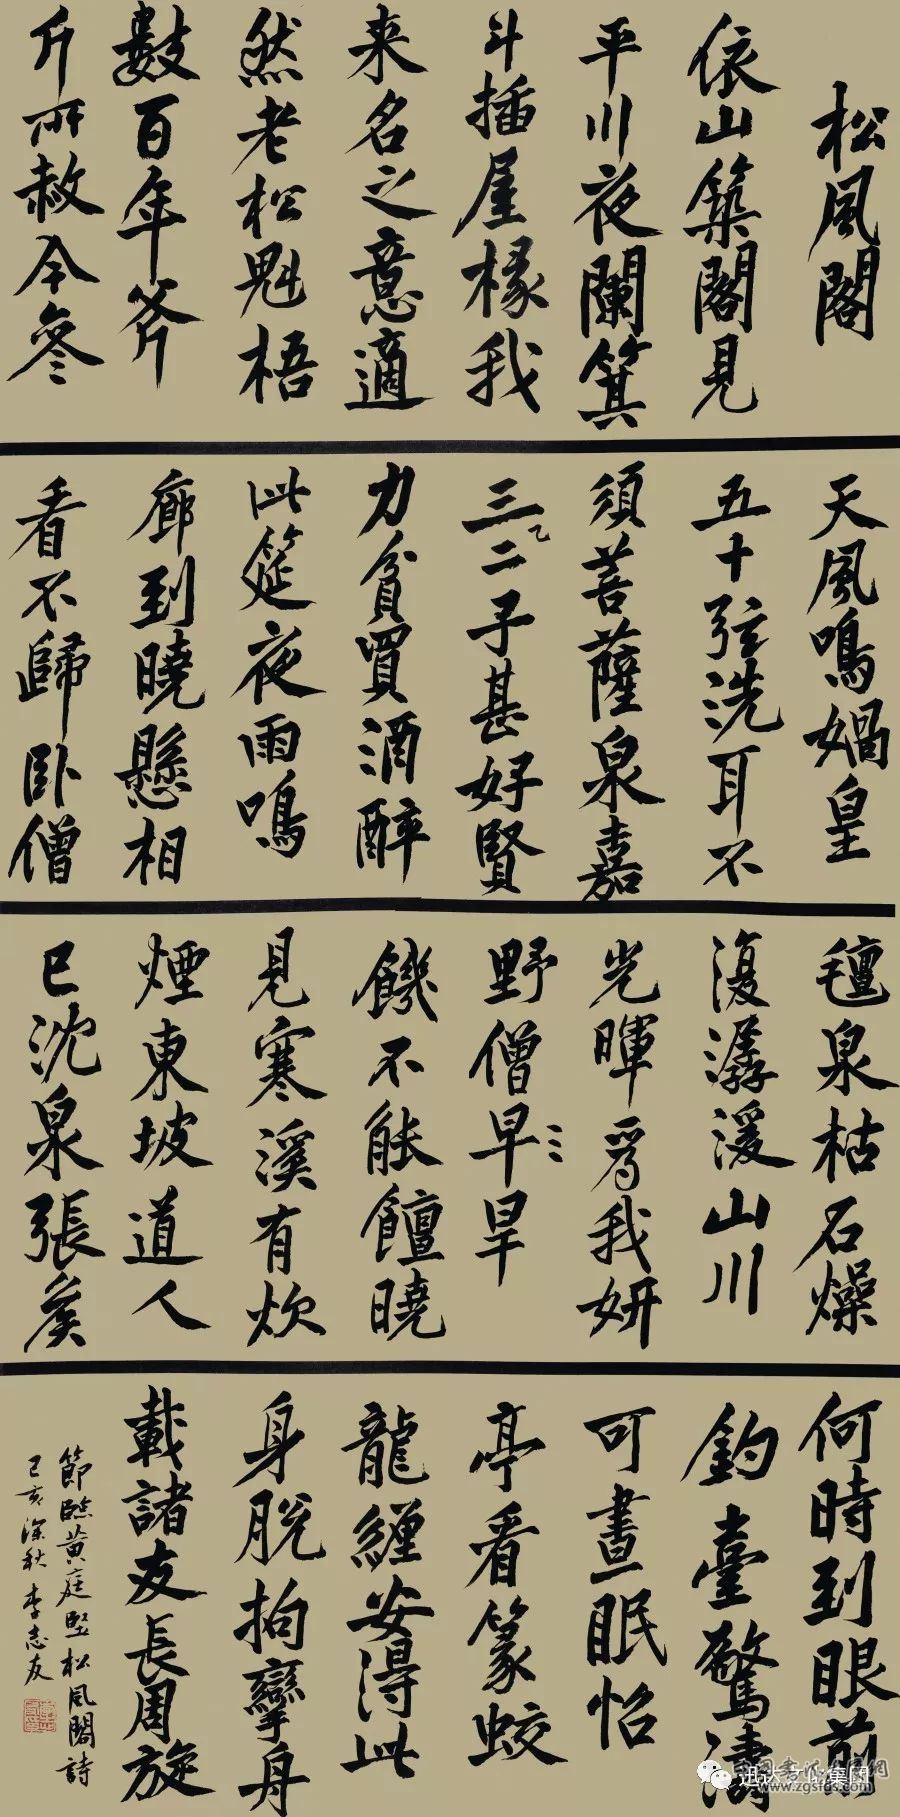 松風閣
依山築閣見
平川夜闌箕
斗插屋椽我
来名之意適
然老松魁梧
數百年斧
斤所赦今參
天風鳴媧皇
五十弦洗耳不
須菩薩泉嘉
三二子甚好賢
力貧買酒醉
此筵夜雨鳴
廊到曉懸相
看不歸卧僧
氊泉枯石燥
復潺湲山川
光暉爲我妍
野僧早旱
饑不能饘曉
見寒溪有炊
煙東坡道人
已沈泉張矦
何時到眼前
釣臺驚濤
可晝眠怡
亭看篆蛟
龍纏安得此
身脫拘攣舟
載諸友長周旋
節臨黄庭堅松風閣詩
己亥深秋李志友
迅达文化集團
www.zgsfds.com